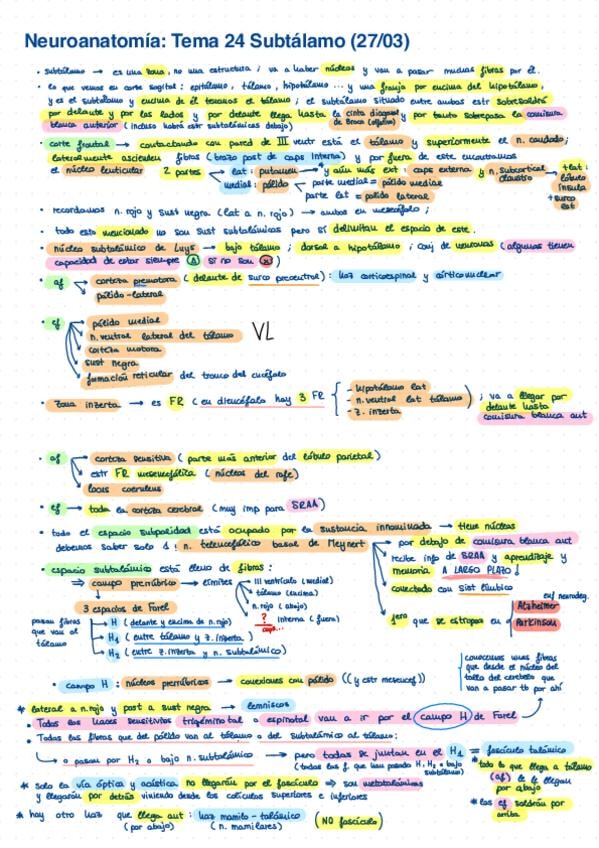 Neuroanatomía: Tema 24 Subtálamo (27/03)
• subtálamo → es una zona, no una estructura; va a haber núcleos y van a pasar muchas fibras por él.
• lo que vemos en corte sagital: epitálamo, tálamo, hipotálamo ... y una franja por encima del hipotálamo,
y es el subtálamo y encima de él tenemos el tálamo; el subtálamo situado entre ambos estr sobresaldrá
por delante y por los lados y por delante llega hasta la cinta diagonal de Broca (olfativa) y por tanto sobrepasa la comisura
blanca anterior (incluso habrá estr subtalámicas debajo)
• corte frontal → contactando con pared de III ventr está el tálamo y superiormente el n. caudado;
lateralmente ascienden fibras (brazo post de caps interna) y por fuera de este encontramos
el núcleo lenticular 2 partes lat: putamen → y aún más ext: caps externa y n. subcortical claustro → + lat: lóbulo ínsula + surco lat
medial: pálido parte medial = pálido medial
parte lat = pálido lateral
• recordamos n. rojo y sust negra (lat a n. rojo) → ambos en mesencéfalo;
• todo esto mencionado no son sust subtalámicas pero sí delimitan el espacio de este.
• núcleo subtalámico de Luys → bajo tálamo; dorsal a hipotálamo; conj de neuronas (algunas tienen
capacidad de estar siempre si no son)
• af corteza premotora (delante de surco precentral): haz corticoespinal y corticonuclear
pálido-lateral
• ef pálido medial
n. ventral lateral del tálamo VL
corteza motora
sust negra
formación reticular del tronco del encéfalo
• zona inzerta → es FR (en diencéfalo hay 3 FR - hipotálamo lat
- n. ventral lat tálamo
- z. inzerta ); va a llegar por delante hasta comisura blanca ant
• af corteza sensitiva (parte más anterior del lóbulo parietal)
estr FR mesencefálica (núcleos del rafe)
locus coeruleus
• ef → toda la corteza cerebral (muy imp para SRAA)
• todo el espacio subpalidal está ocupado por la sustancia innominada → tiene núcleos
debemos saber solo 1: n. telencefálico basal de Meynert por debajo de comisura blanca ant
recibe info de SRAA y aprendizaje y
memoria A LARGO PLAZO!
conectado con sist límbico
pero que se estropea en enf neurodeg. Alzheimer
Parkinson
• espacio subtalámico está lleno de fibras:
⇒ campo prerrúbrico → límites III ventrículo (medial)
tálamo (encima)
n. rojo (abajo)
? interna (fuera)
caps...
3 espacios de Forel
pasan fibras que van al tálamo
H (delante y encima de n. rojo)
H₁ (entre tálamo y z. inzerta)
H₂ (entre z. inzerta y n. subtalámico)
conocemos unas fibras
que desde el núcleo del
tallo del cerebro que
van a pasar tb por ahí
• campo H: núcleos prerrúbricos → conexiones con pálido ((y estr mesencef))
* lateral a n. rojo y post a sust negra → lemniscos
• Todas los haces sensitivos trigéminotal o espinotal van a ir por el campo H de Forel
• Todas las fibras que del pálido van al tálamo o del subtalámico al tálamo:
→ o pasan por H₂ o bajo n. subtalámico → pero todas se juntan en el H₁ = fascículo talámico
(todas las f. que van pasado H, H₂ o bajo subtálamo)
* todo lo que llega a tálamo (af) le llegan por abajo
* las ef saldrán por arriba
* solo la vía óptica y acústica no llegarán por el fascículo ⇒ son metatalámicas
y llegarán por detrás viniendo desde los colículos superiores e inferiores
* hay otro haz que llega ant: haz mamilo-talámico (NO fascículo)
(por abajo) (n. mamilares)